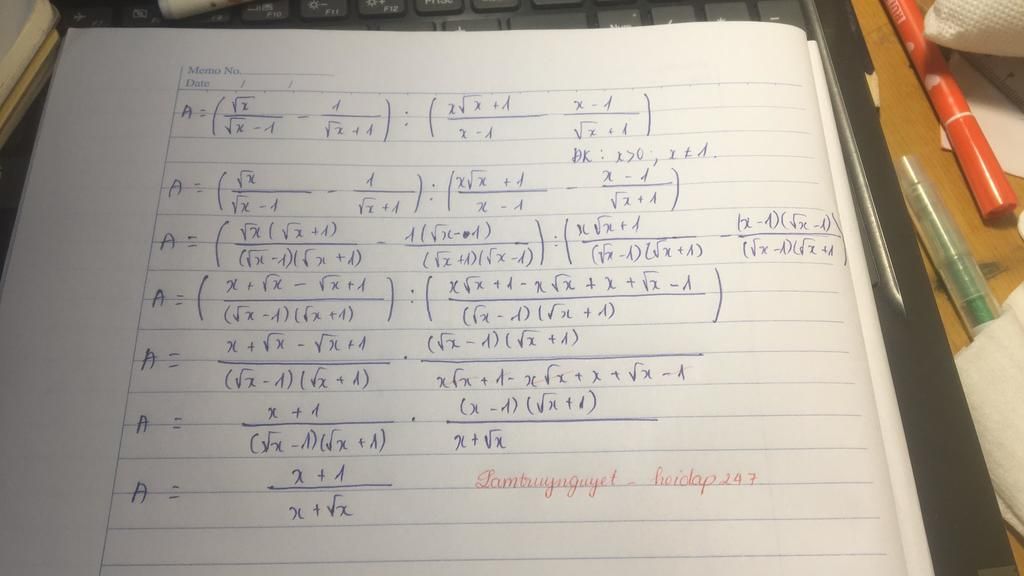 Memo No.
Date / /
A = (√x/(√x - 1) - 1/(√x + 1)) : ((x√x + 1)/(x - 1) - (x - 1)/(√x + 1))
ĐK : x > 0 ; x ≠ 1.
A = (√x/(√x - 1) - 1/(√x + 1)) : ((x√x + 1)/(x - 1) - (x - 1)/(√x + 1))
A = (√x(√x + 1)/((√x - 1)(√x + 1)) - 1(√x - 1)/((√x + 1)(√x - 1))) : ((x√x + 1)/((√x - 1)(√x + 1)) - (x - 1)(√x - 1)/((√x - 1)(√x + 1))
A = ((x + √x - √x + 1)/((√x - 1)(√x + 1))) : ((x√x + 1 - x√x + x + √x - 1)/((√x - 1)(√x + 1)))
A = (x + √x - √x + 1)/((√x - 1)(√x + 1)) . ((√x - 1)(√x + 1))/(x√x + 1 - x√x + x + √x - 1)
A = (x + 1)/((√x - 1)(√x + 1)) . ((x - 1)(√x + 1))/(x + √x)
A = (x + 1)/(x + √x)
Lamtruynguyet - hoidap247